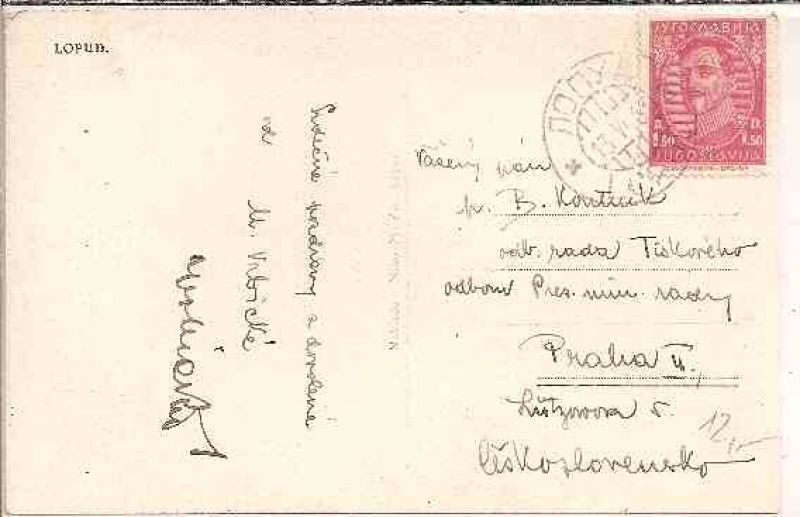 LOPUD.
Srdečné pozdravy z dovolené
od M. Vrbické
ЈУГОСЛАВИЈА
1.50 1.50
JUGOSLAVIJA
Vážený pán
p. B.
odb. rada Tiskového
odboru Pres. min. rady
Praha II.
Lützowova 5.
Československo
12,-